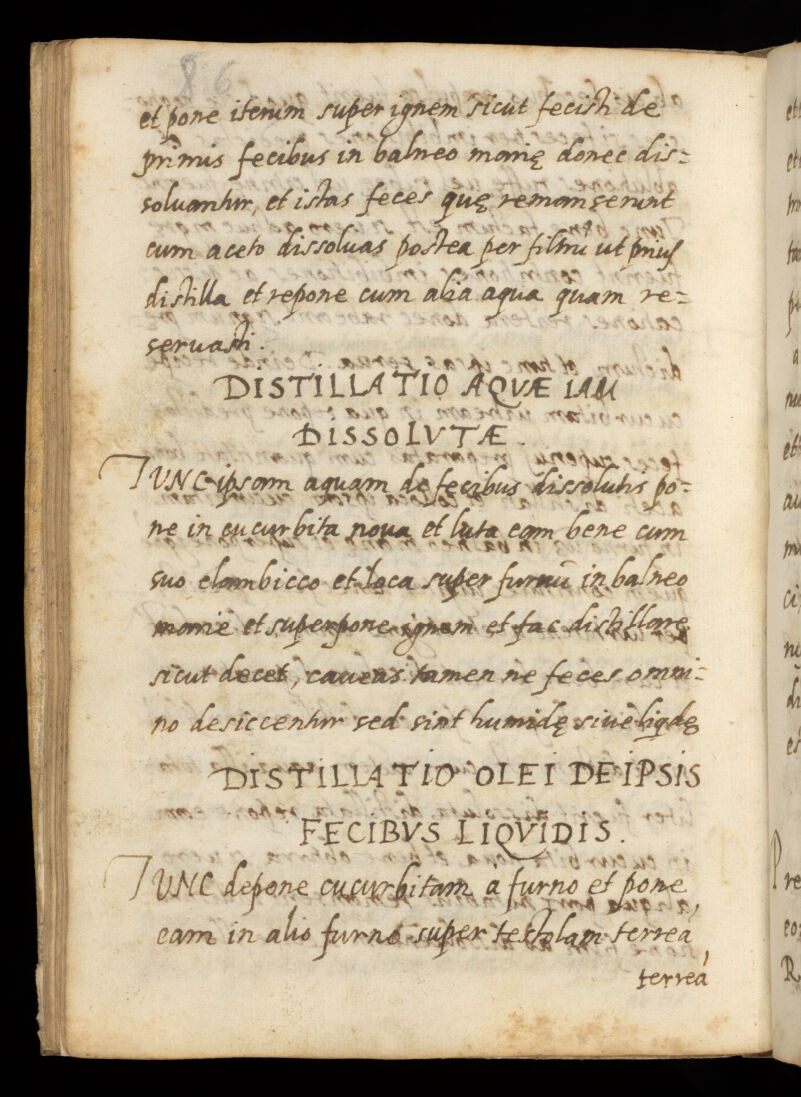 86
et pone iterum super ignem sicut fecisti de
primis fecibus in balneo marię donec dis=
soluantur, et istas feces quę remanserunt
cum aceto dissoluas postea per filtrū ut prius
distilla et repone cum alia aqua quam re=
seruasti.
DISTILLATIO AQVÆ IAM
DISSOLVTÆ.
TUNC ipsam aquam de fecibus dissolutis po=
ne in cucurbita noua et luta eam bene cum
suo elambicco et loca super furnū in balneo
marie et superpone ignem et fac distillare
sicut decet, caueas tamen ne feces omni=
no desiccentur sed sint humidę siue liqdę
DISTILLATIO OLEI DE IPSIS
FECIBVS LIQVIDIS.
TUNC depone cucurbitam à furno et pone
eam in alio furno super testolam terreá
terreá